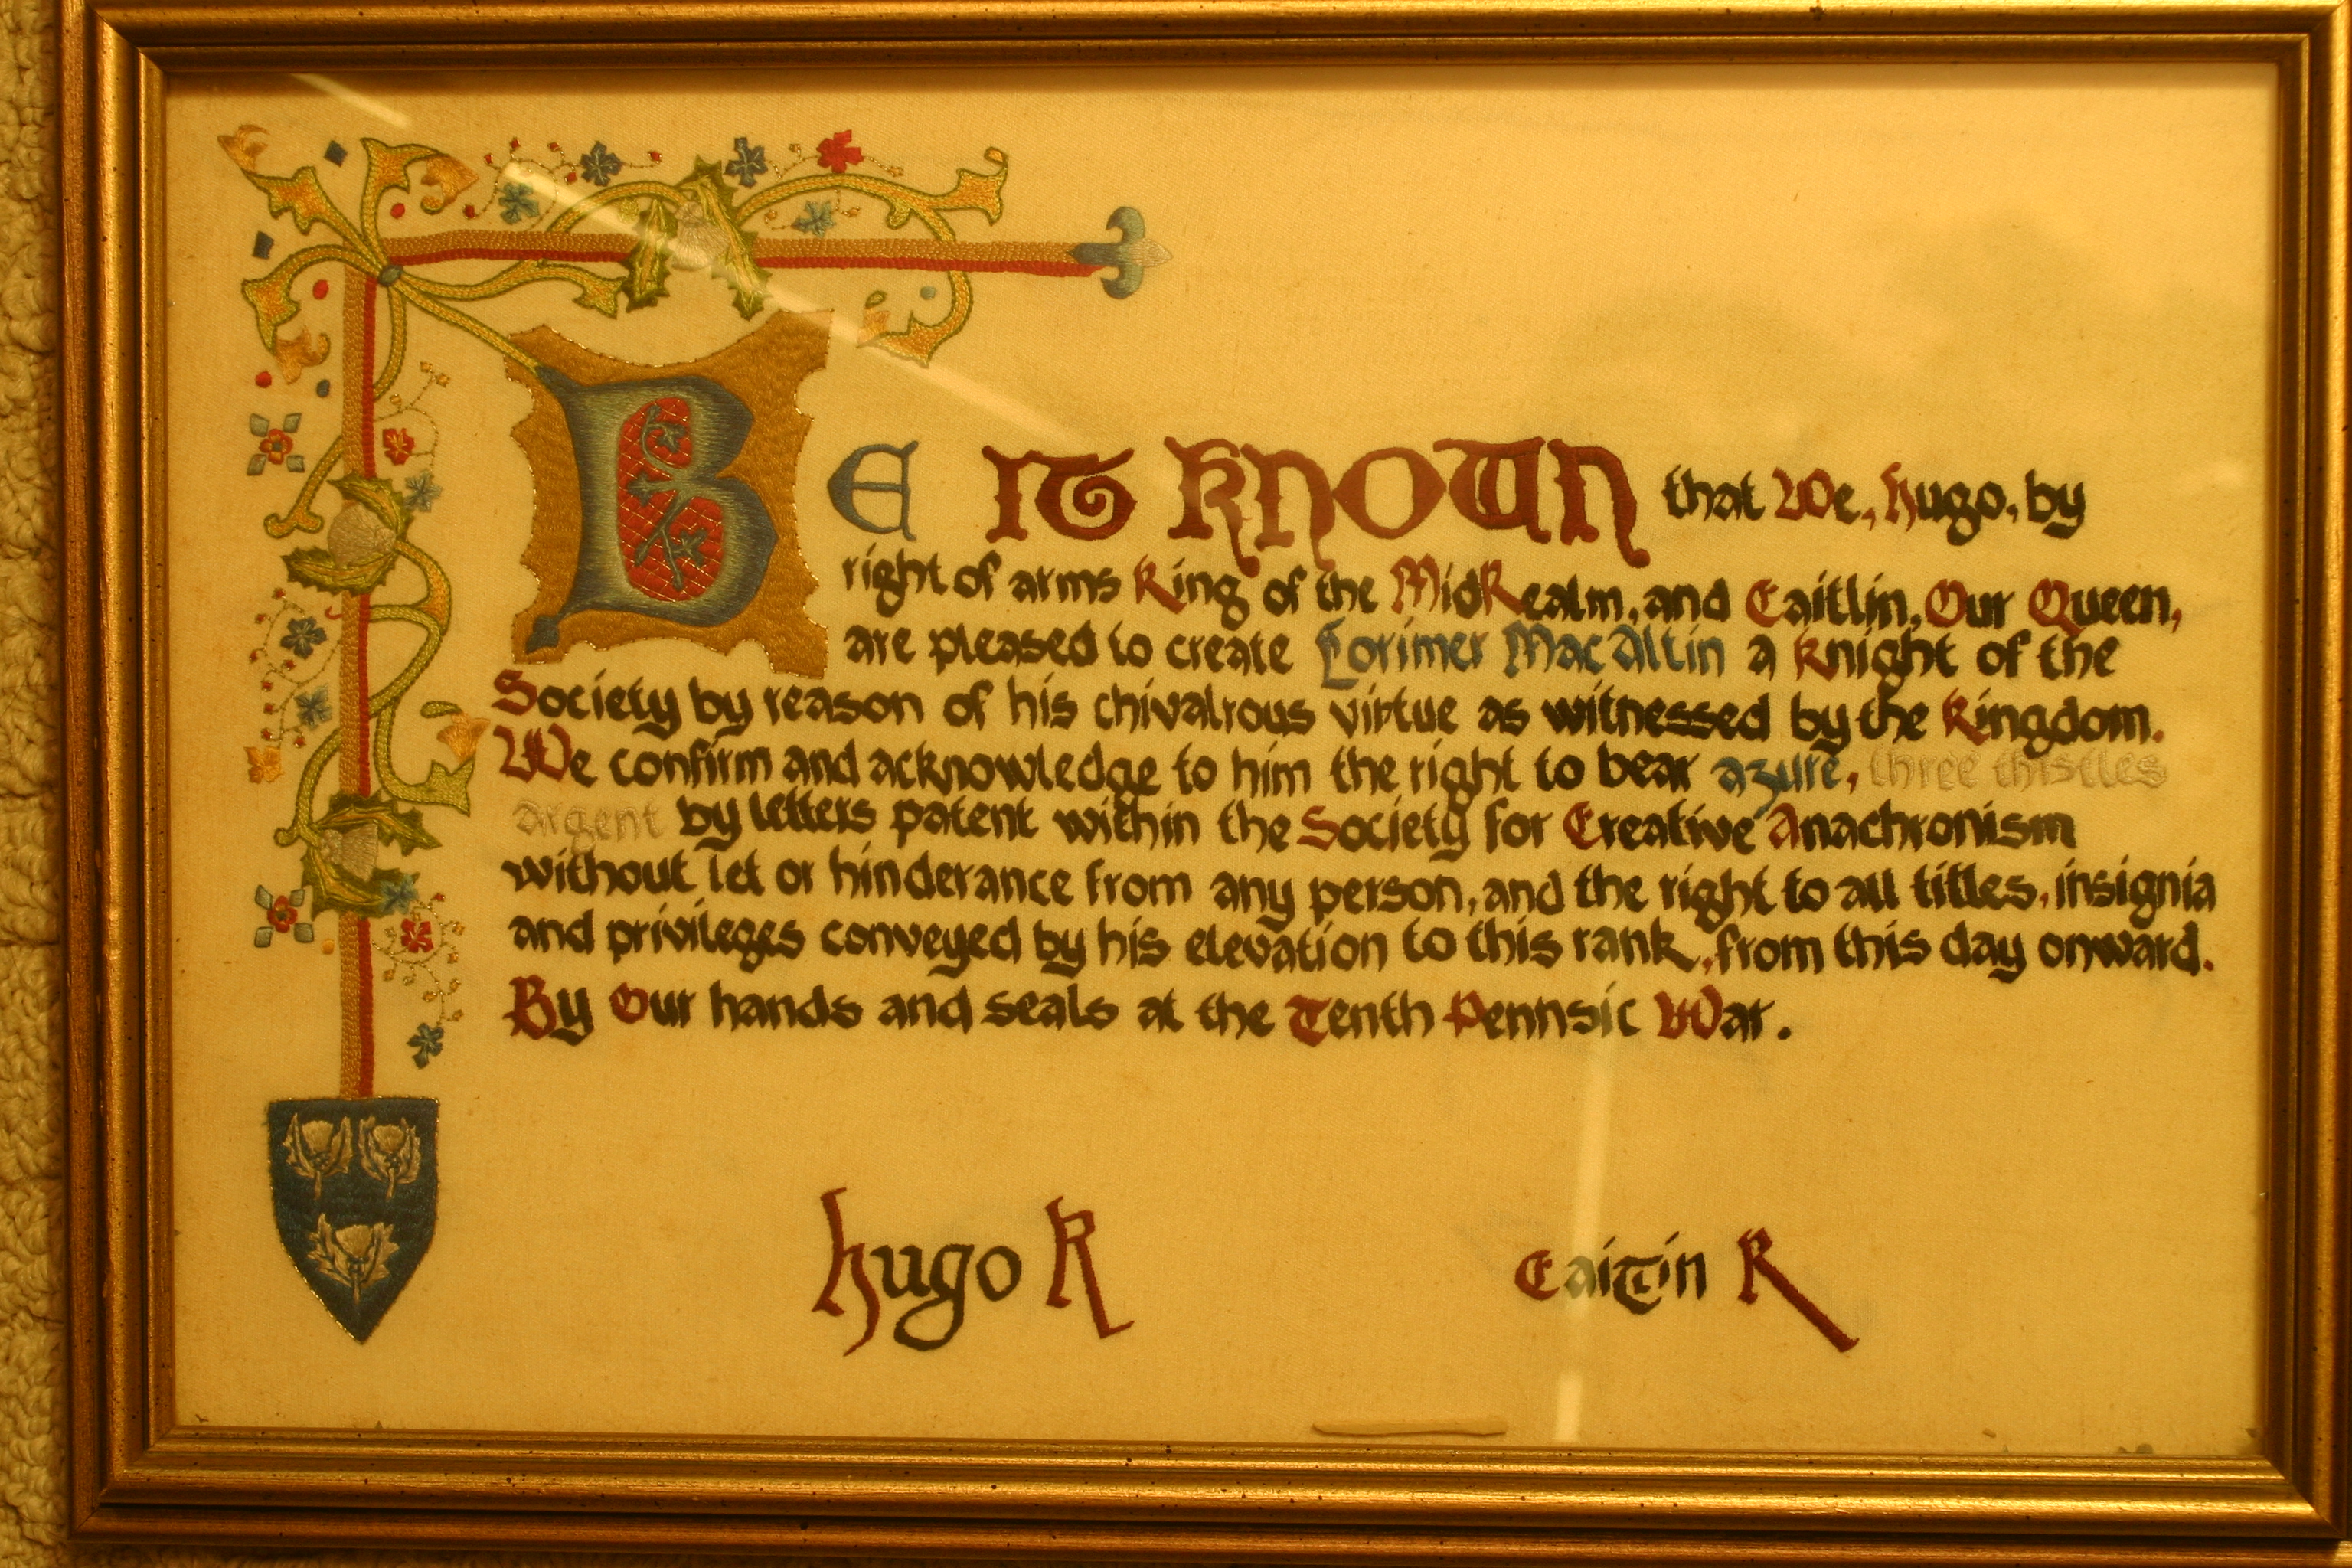 BE IT KNOWN that We, Hugo, by
right of arms King of the MidRealm, and Caitlin, Our Queen,
are pleased to create Lorimer MacAltin a Knight of the
Society by reason of his chivalrous virtue as witnessed by the Kingdom.
We confirm and acknowledge to him the right to bear azure, three thistles
argent by letters patent within the Society for Creative Anachronism
without let or hinderance from any person, and the right to all titles, insignia
and privileges conveyed by his elevation to this rank, from this day onward.
By Our hands and seals at the Tenth Pennsic War.
Hugo R Caitlin R